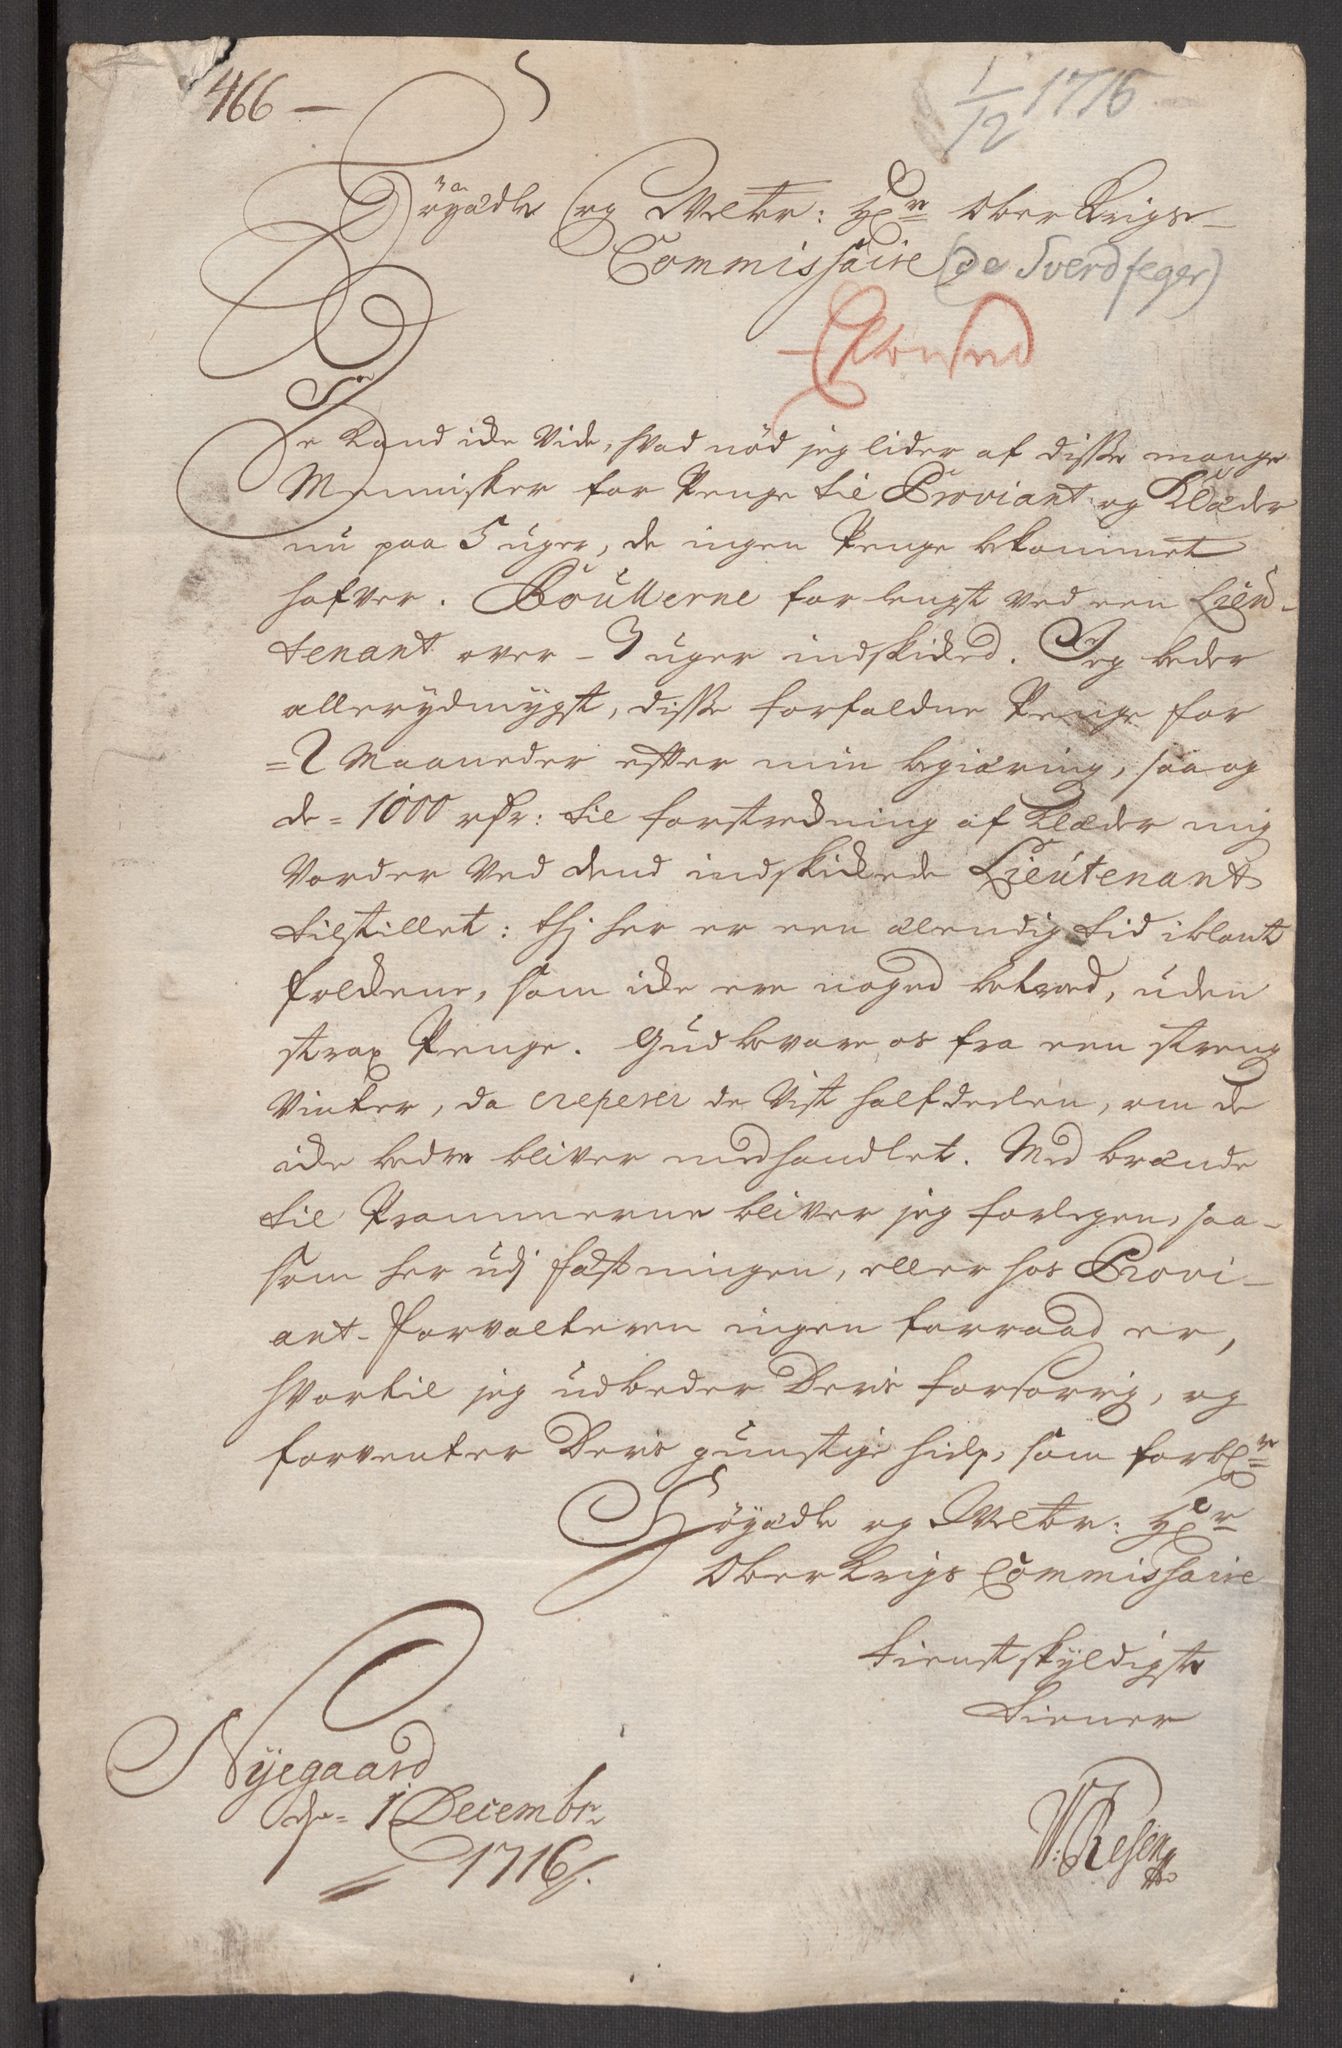 466 —
1/12 1716
Höyædle og Velbr: Hr Ober Krigs-
Commissaire (de Sverdfeger)
De Kand icke vide, hvad nöd jeg lider af disse mange
Mennisker for Penge til Proviant og Klæder
nu paa 5 uger, de ingen Penge bekommet
hafver. Roullerne for lengst ved een Lieu-
tenant over - 3 uger indskicked. Jeg beder
allerydmygst, disse forfaldne Penge for
= 2 Maaneder efter min begiæring, saa og
de = 1000 rdr: til forstrekning af Klæder mig
vorder ved dend indskickede Lieutenant
tilstillet: thj her er een ælendig tid iblant
folckene, som icke ere noged betroed, uden
strax Penge. Gud bevare os fra een streng
Vinter, da creperer de vist halfdeelen, om de
icke bedre bliver medhandlet. Med brænde
til Prammerne bliver jeg forlegen, saa-
som her udj fæstningen, eller hos Provi-
ant-forvalteren ingen forraad er,
hvortil jeg udbeder Deris forsorrig, og
forventer Deris gunstige hielp, som forblr
Höyædle og Velbr: Hr
Ober Krigs Commissaire
tienstskyldigste
tiener
Nyegaard
de = 1 Decembr
1716
V: Resen